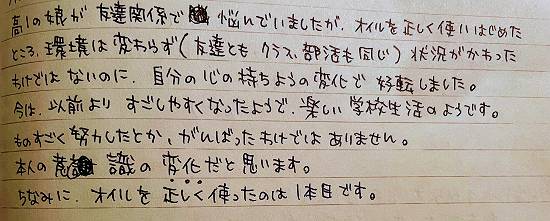 高1の娘が 友達関係で 悩んでいましたが、オイルを正しく使いはじめた
ところ、環境は変わらず(友達とも クラス、部活も同じ) 状況がかわった
わけではないのに、自分の心の持ちようの変化で 好転しました。
今は、以前より すごしやすくなったようで、楽しい学校生活のようです。
ものすごく努力したとか、がんばったわけではありません。
本人の意識の変化だと思います。
ちなみに、オイルを正しく使ったのは1本目です。